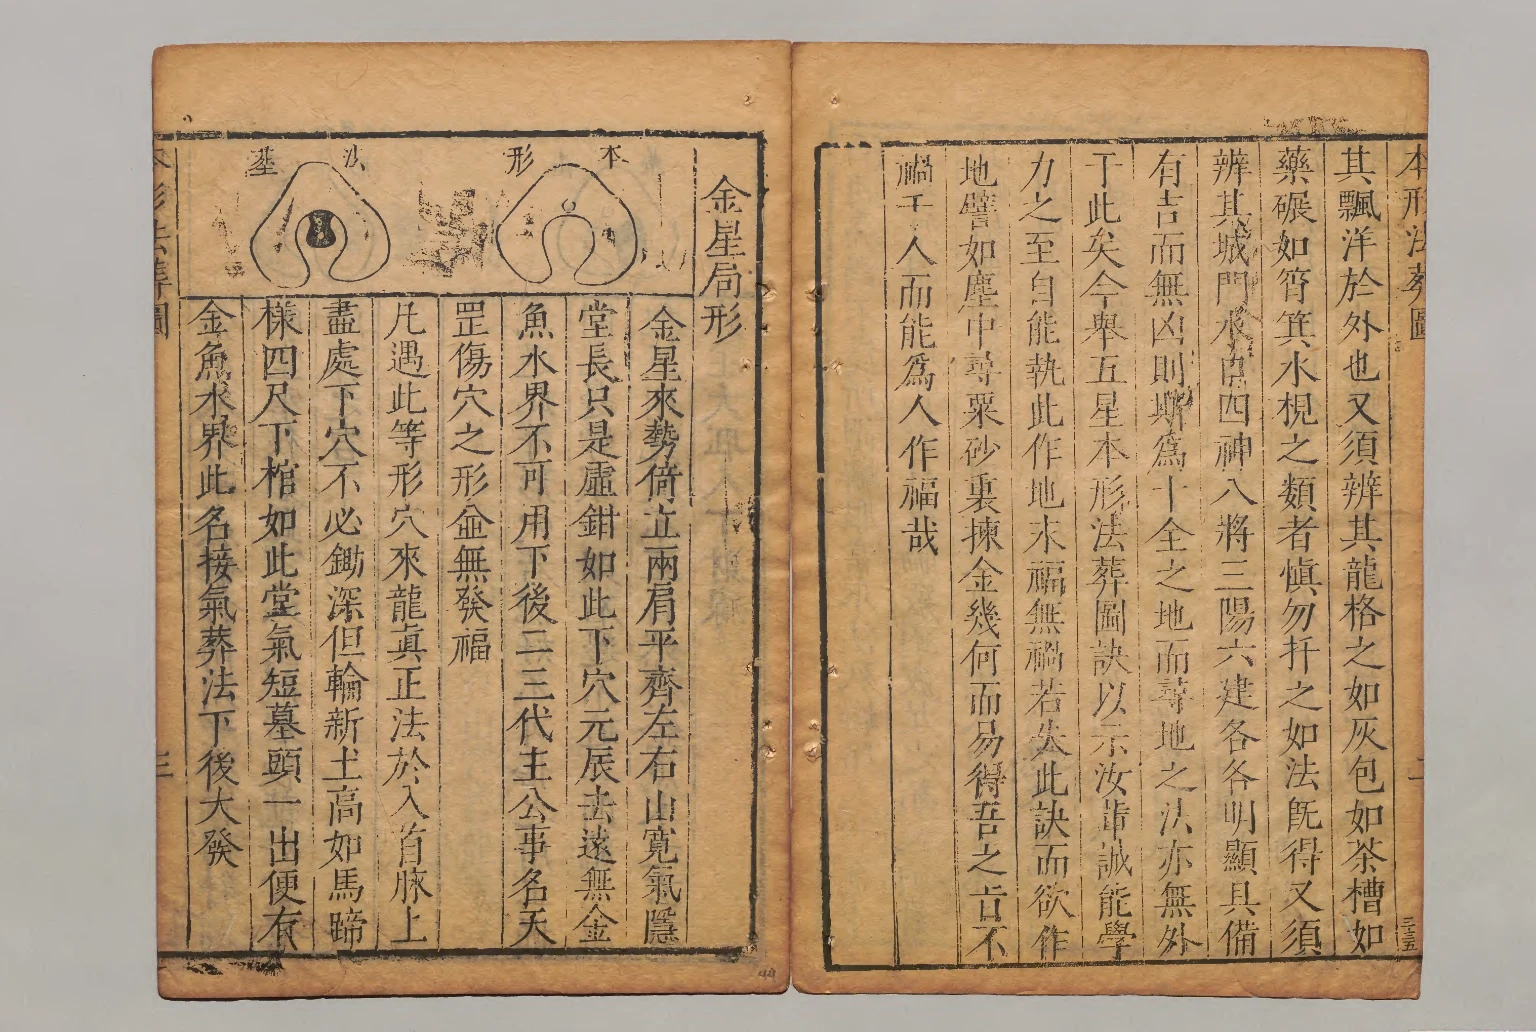 本形法葬圖
二
其飄洋於外也又須辨其龍格之如灰包如茶槽如
藥碾如筲箕水梘之類者愼勿扦之如法旣得又須
辨其城門水口四神八將三陽六建各各明顯具備
有吉而無凶則斯爲十全之地而尋地之法亦無外
于此矣今舉五星本形法葬圖訣以示汝曹誠能學
力之至自能執此作地末福無禍若失此訣而欲作
地譬如塵中尋粟砂裏揀金幾何而易得吾之言不
禍于人而能爲人作福哉
金星局形
本形
法塟
金星來勢倚立兩肩平齊左右山寬氣隱
堂長只是虛鉗如此下穴元辰去遠無金
魚水界不可用下後二三代主公事名天
罡傷穴之形並無發福
凡遇此等形穴來龍眞正法於入首脉上
盡處下穴不必鋤深但輪新土高如馬蹄
樣四尺下棺如此堂氣短墓頭一出便有
金魚水界此名接氣葬法下後大發
本形法葬圖
三